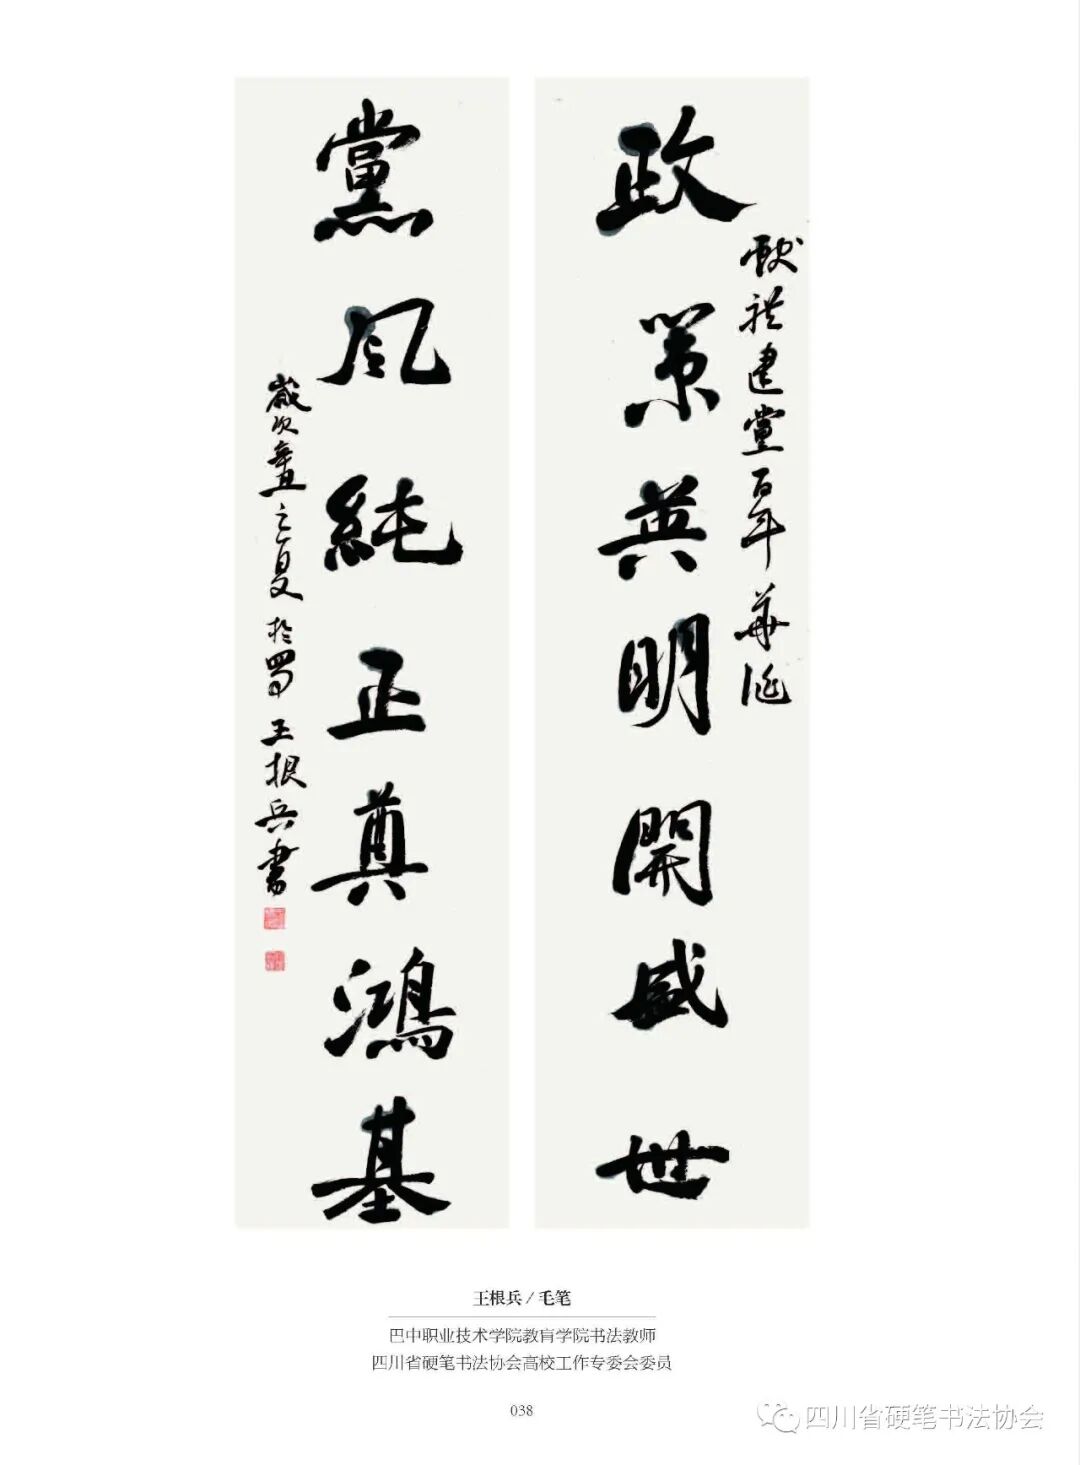 政策英明開盛世
献礼建黨百年華诞
黨風純正奠鴻基
歲次辛丑之夏於蜀王根兵書
王根兵 / 毛笔
巴中职业技术学院教育学院书法教师
四川省硬笔书法协会高校工作专委会委员
038
四川省硬笔书法协会